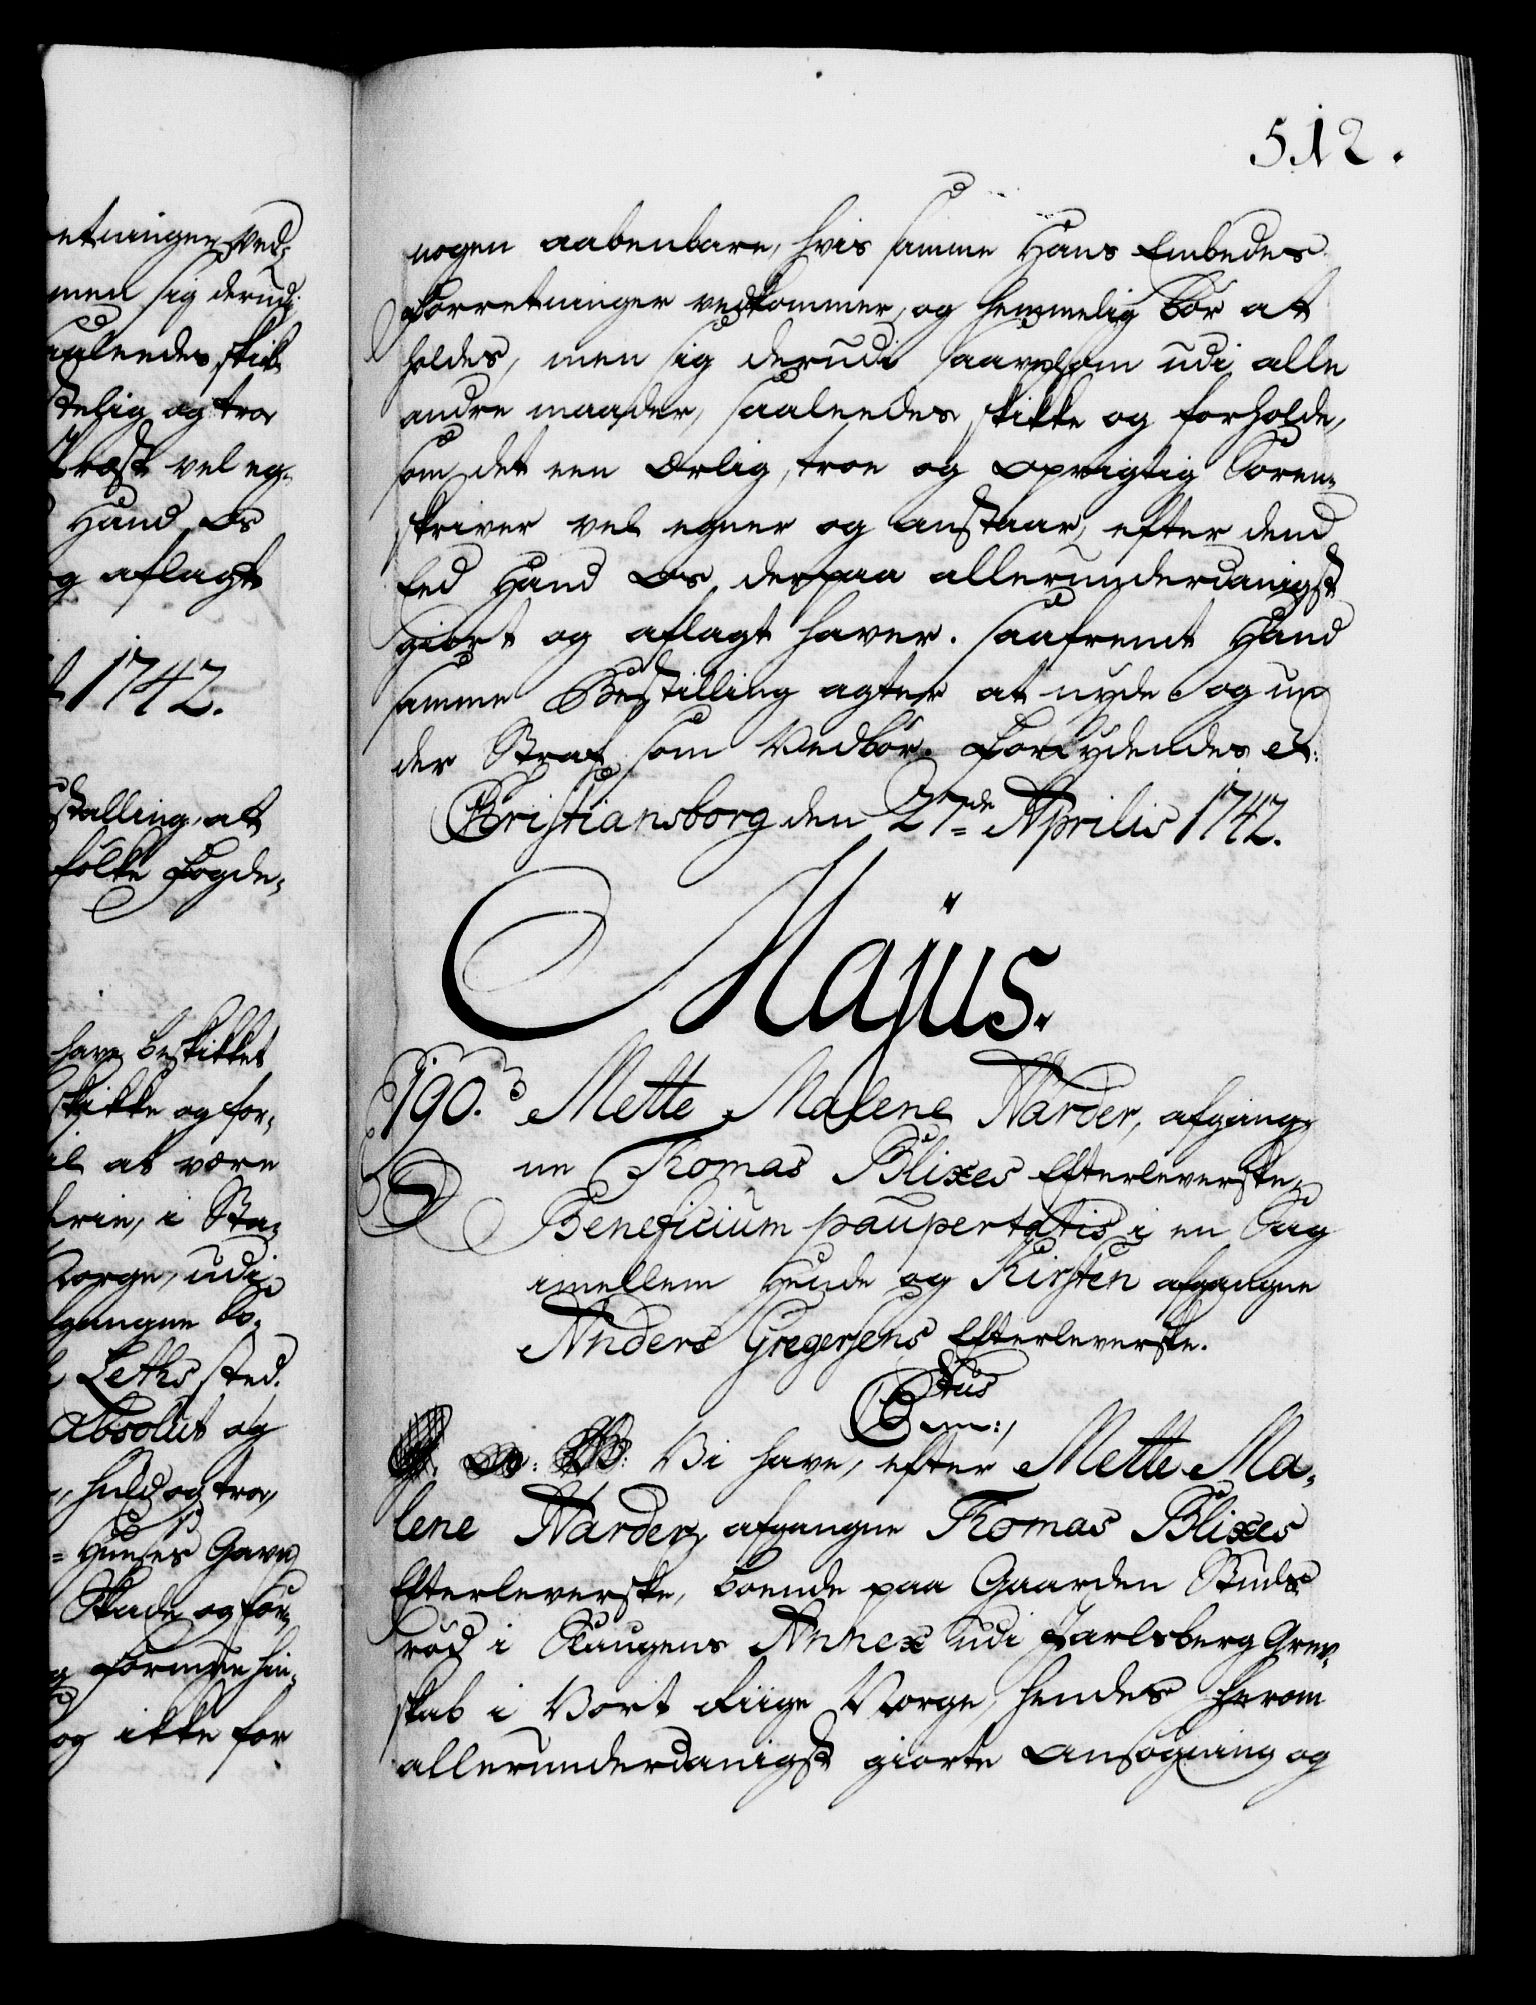 512.
etninger ved-
men sig derudi
aaleedes skik
stelig og tro
Præst vel eg-
Hand Os
g aflagt
1742.
stalling at
folke Fogde-
have beskikket
skikke og for-
il at være
i Sta-
Norge, udi
fgangne So-
Leths sted.
Absolut og
huld og tro,
Huuses Gavn
Skade og for-
formeene hin-
og ikke for
nogen aabenbare, hvis samme Hans Embedes
Forretninger vedkommer, og hemmelig bør at
holdes, men sig derudi saavelsom udi alle
andre maader, saaleedes skikke og forholde,
som det een Ærlig, troe og oprigtig Soren-
skriver vel egner og anstaar, efter dend
Eed Hand Os derpaa allerunderdanigst
giort og aflagt haver. Saafremt Hand
samme Bestilling agter at nyde og un-
der Straf som Vedbør. Forbydendes etc:
Christiansborg den 27de Aprilis 1742.
Majus.
190. Mette Malene Narder, afgang-
ne Thomas Blixes Efterleverske,
Beneficium paupertatis i en Sag
imellem Hende og Kirsten afgangne
Anders Gregersens Efterleverske.
C6tus
Gm:
Vi have, efter Mette Ma-
lene Narder, afgangne Thomas Blixes
Efterleverske, boende paa Gaarden Studs-
rød i Slaugens Annex udi Jarlsberg Grev-
skab i Vort Riige Norge, hendes herom
allerunderdanigst giorte Ansøgning og